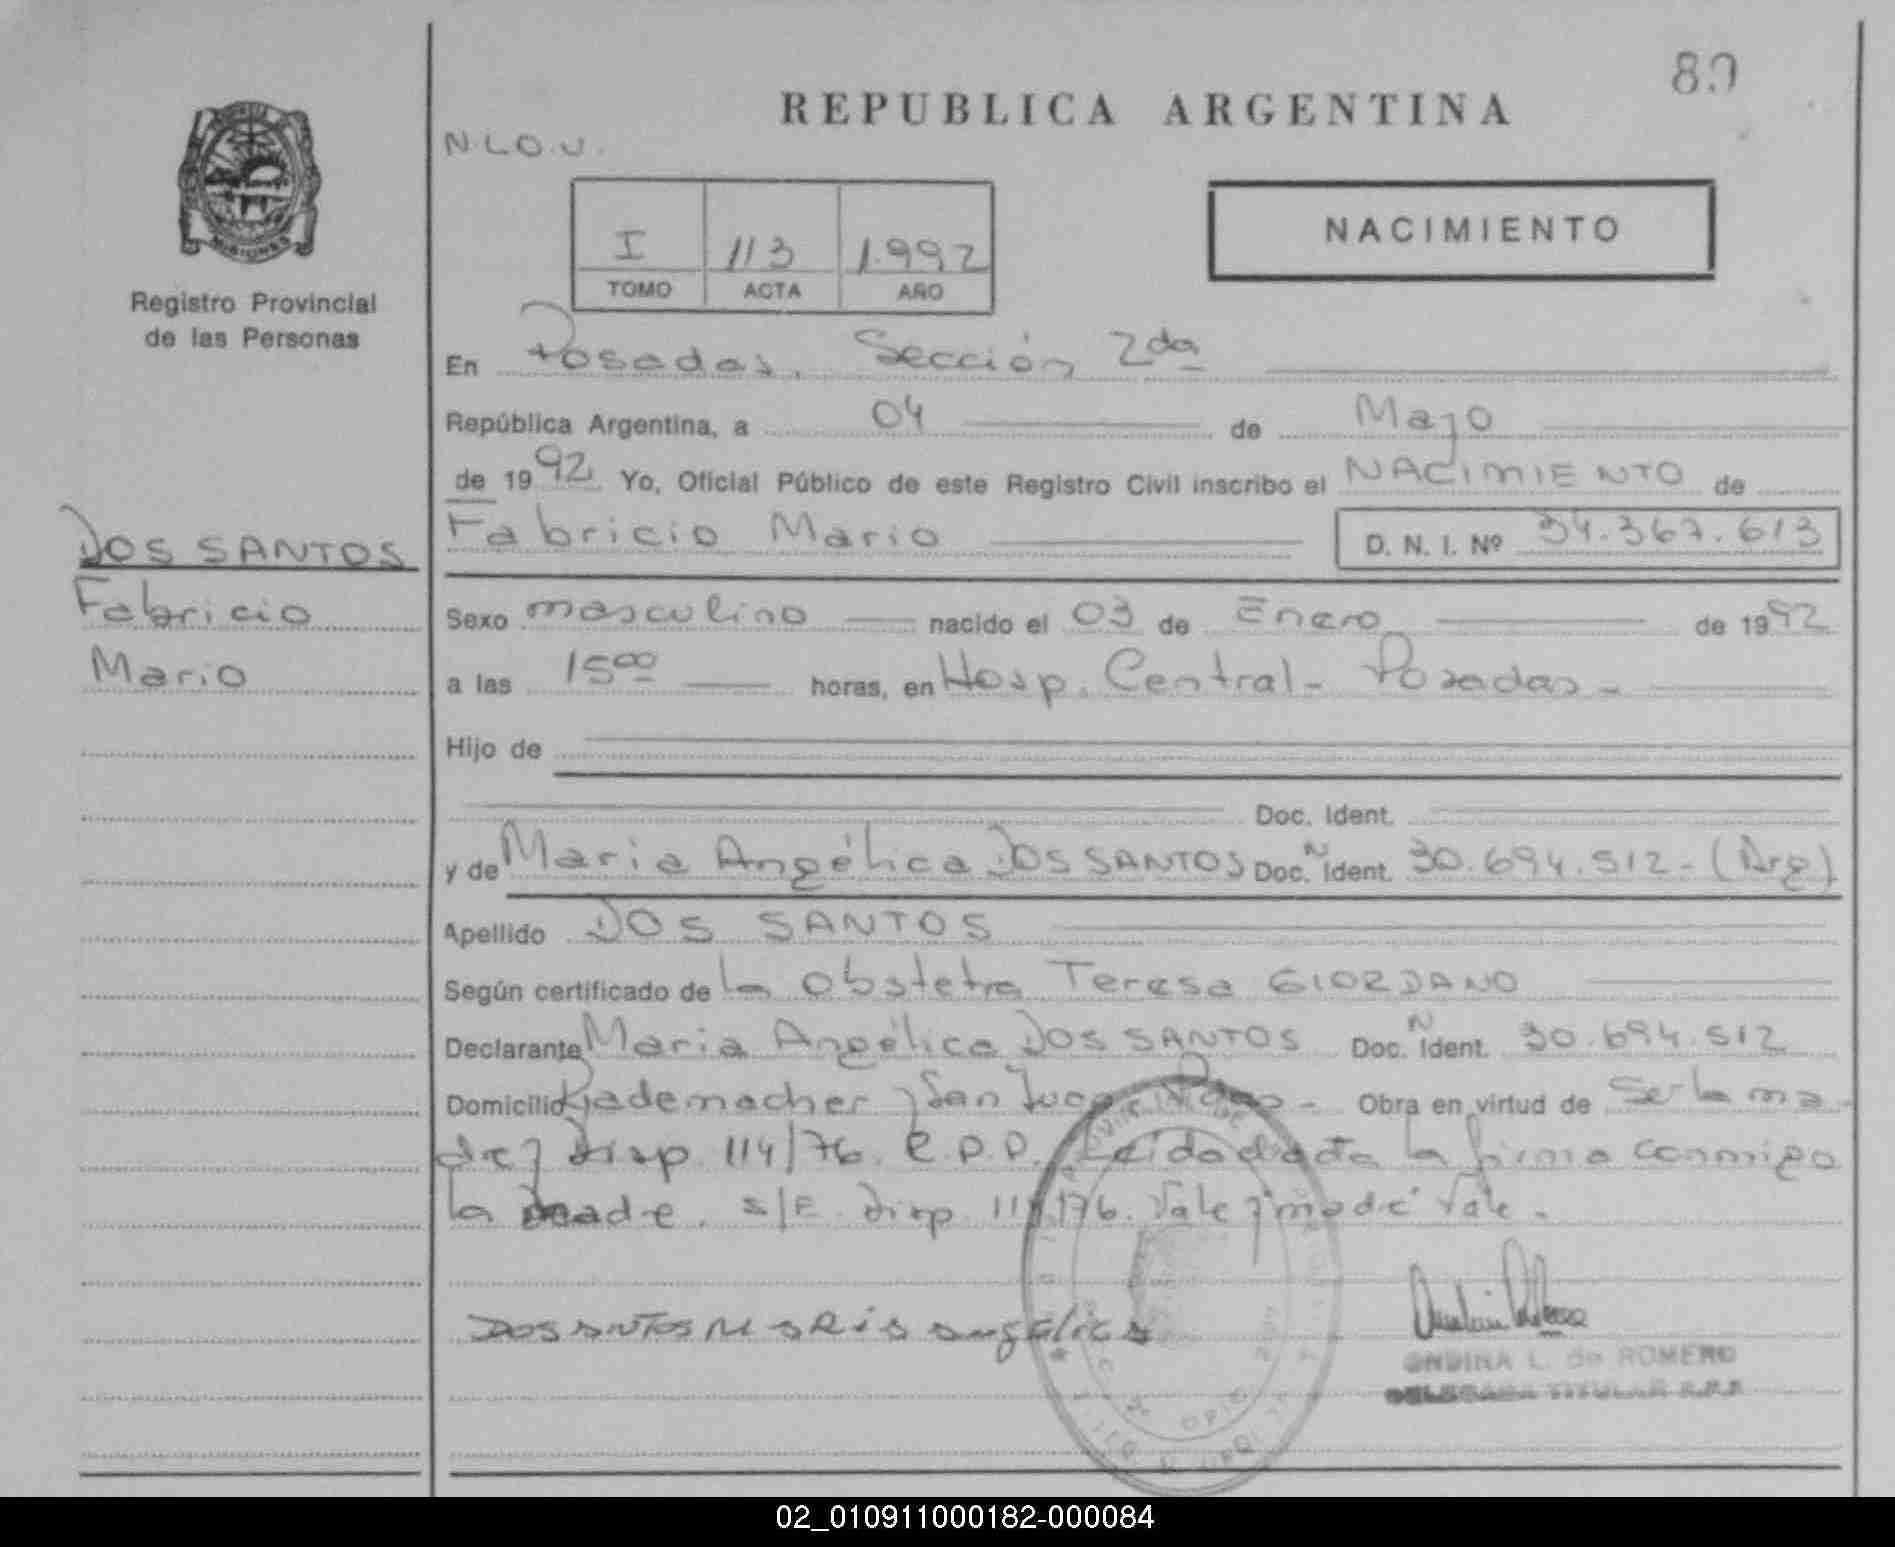 80
REPUBLICA ARGENTINA
N.L.O.U.
MISIONES
Registro Provincial
de las Personas
I 113 1.992
TOMO ACTA AÑO
NACIMIENTO
En Posadas, Sección 2da
República Argentina, a 04 de Mayo
de 1992 Yo, Oficial Público de este Registro Civil inscribo el NACIMIENTO de
Fabricio Mario D. N. I. Nº 34.367.613
DOS SANTOS
Fabricio
Mario
Sexo masculino nacido el 03 de Enero de 1992
a las 1500 horas, en Hosp. Central - Posadas -
Hijo de
Doc. Ident.
y de Maria Angélica DOS SANTOS Doc. N Ident. 30.694.512 - (Arg)
Apellido DOS SANTOS
Según certificado de la Obstetra Teresa GIORDANO
Declarante Maria Angélica DOS SANTOS Doc. N Ident. 30.694.512
Domicilio Rademacher y San Juan Pdas - Obra en virtud de Ser la ma-
dre y Disp. 114/76. R.P.P. Leida el acta la firma conmigo
la madre. s/E. Disp. 114/76. Vale y "madre" Vale.
DOS SANTOS MARIA angélica
ONDINA L. de ROMERO
DELEGADA TITULAR R.P.P.
02_010911000182-000084